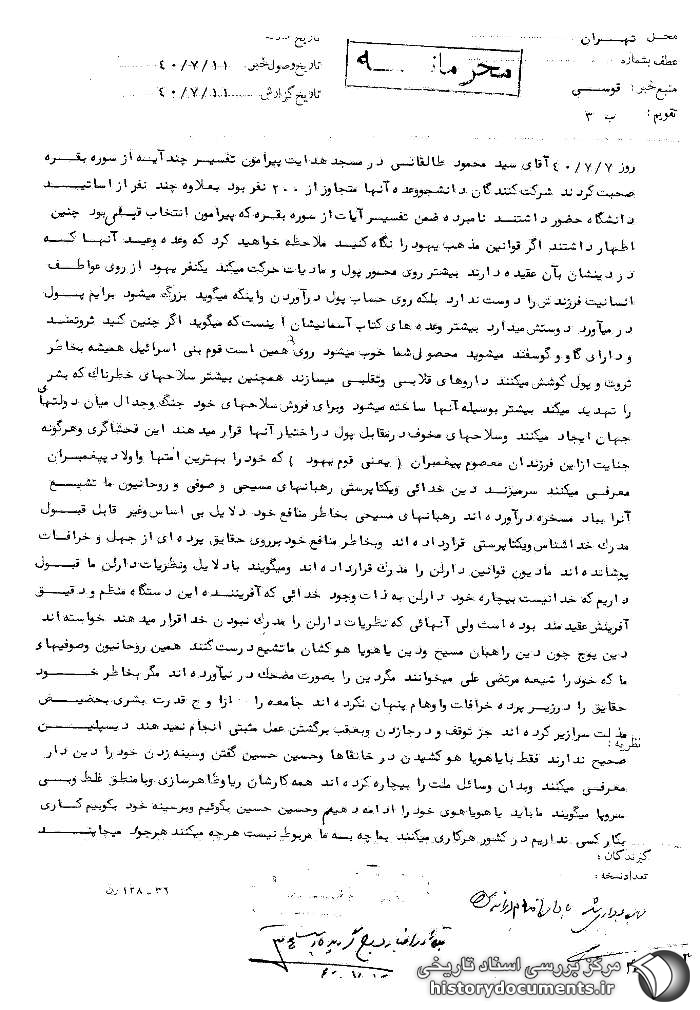 محل تهران
عطف بشماره
منبع خبر: قوسی
تقویم: ب ۳
محرمانه
تاریخ وصول خبر ۴۰/۷/۱۱
تاریخ گزارش ۴۰/۷/۱۱
روز ۴۰/۷/۷ آقای سید محمود طالقانی در مسجد هدایت پیرامون تفسیر چند آیه از سوره بقره
صحبت کردند شرکت کنندگان دانشجو وعده آنها متجاوز از ۲۰۰ نفر بود بعلاوه چند نفر از اساتید
دانشگاه حضور داشتند نامبرده ضمن تفسیر آیات از سوره بقره که پیرامون انتخاب قبله بود چنین
اظهار داشتند اگر قوانین مذهب یهود را نگاه کنید ملاحظه خواهید کرد که وعده وعید آنها که
در دینشان بآن عقیده دارند بیشتر روی محور پول و مادیات حرکت میکند یکنفر یهود از روی عواطف
انسانیت فرزندش را دوست ندارد بلکه روی حساب پول درآوردن واینکه میگوید بزرگ میشود برایم پول
در میآورد دوستش میدارد بیشتر وعده های کتاب آسمانیشان اینست که میگوید اگر چنین کنید ثروتمند
و دارای گاو و گوسفند میشوید محصولی شما خوب میشود روی همین است قوم بنی اسرائیل همیشه بخاطر
ثروت و پول کوشش میکنند داروهای قلابی وتقلبی میسازند همچنین بیشتر سلاحهای خطرناک که بشری
را تهدید میکند بیشتر بوسیله آنها ساخته میشود وبرای فروش سلاحهای خود جنگ وجدال میان دولتهای
جهان ایجاد میکنند وسلاحهای مخوف در مقابل پول در اختیار آنها قرار میدهند این فحشاگری وهرگونه
جنایت از این فرزندان معصوم پیغمبران (یعنی قوم یهود) که خود را بهترین امتها واولاد پیغمبران
معرفی میکنند سرمیزند دین خدائی ویکتاپرستی رهبانهای مسیحی و صوفی و روحانیون ما تشیع
آنرا بباد مسخره درآورده اند رهبانهای مسیحی بخاطر منافع خود دلایل بی اساس وغیر قابل قبول
مدرک خدا شناس ویکتاپرستی قرار داده اند وبخاطر منافع خود برروی حقایق پرده ای از جهل و خرافات
پوشانده اند مادیون قوانین دارلن را مدرک قرار داده اند ومیگویند بادلایل ونظریات دارلن ما قبول
داریم که خدا نیست بیچاره خود دارلن به ذات وجود خدائی که آفریننده این دستگاه منظم و دقیق
آفرینش عقیدمند بوده است ولی آنهائی که نظریات دارلن را مدرک نبودن خدا قرار میدهند خواسته اند
دین پوچ چون دین راهبان مسیح ودین یاهویا هوکشان ما تشیع درست کنند همین روحانیون وصوفیهای
ما که خود را شیعه مرتضی علی میخوانند مگر دین را بصورت مضحک در نیآورده اند مگر بخاطر خود
حقایق را در زیر پرده خرافات واوهام پنهان نکرده اند جامعه را از اوج قدرت بشری بحضیض
مذلت سرازیر کرده اند جز توقف و درجازدن وبعقب برگشتن عمل مثبتی انجام نمیدهند دیسپلین
نظریه:
صحیح ندارند فقط بایاهویا هوکشیدن در خانقاها وحسین حسین گفتن وسینه زدن خود را دین دار
معرفی میکنند وبدان وسائل ملت را بیچاره کرده اند همه کارشان ریا وظاهرسازی وبا منطق غلط وبی
سروپا میگویند ما باید یاهویاهوی خود را ادامه دهیم وحسین حسین بگوئیم وبرسینه خود بکوبیم کاری
بکار کسی نداریم در کشور هرکاری میکنند بما چه بسه ما مربوط نیست هرچه میکنند هرجور میچاپند
گیرندگان:
تعداد نسخه:
۳۶ - ۱۲۸ رن
مرکز بررسی اسناد تاریخی
historydocuments.ir